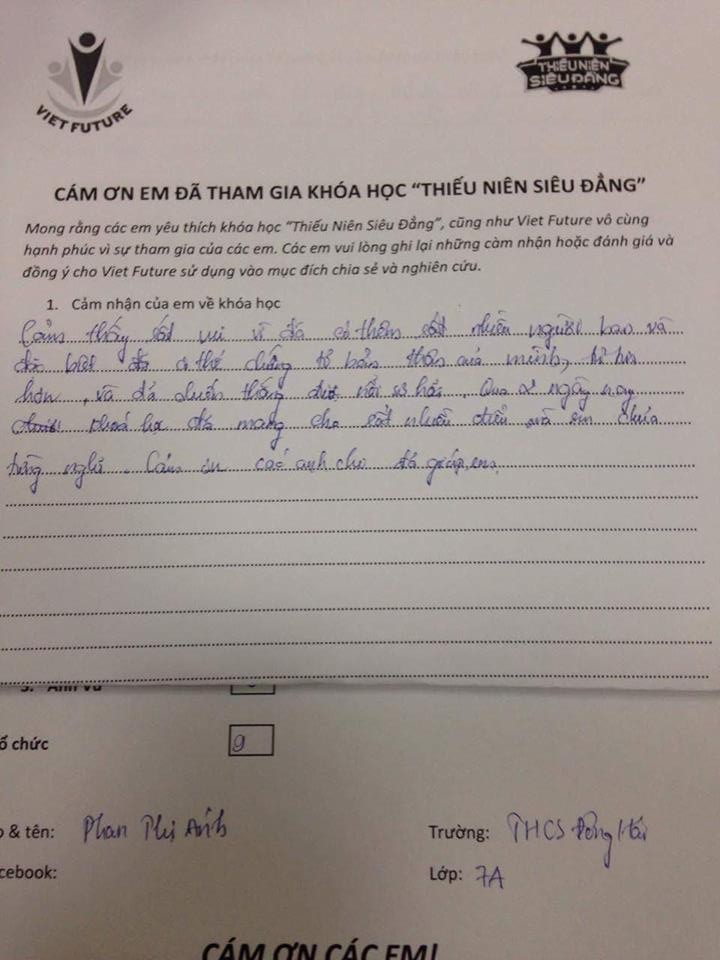 VIET FUTURE
THIẾU NIÊN
SIÊU ĐẲNG
CÁM ƠN EM ĐÃ THAM GIA KHÓA HỌC “THIẾU NIÊN SIÊU ĐẲNG”
Mong rằng các em yêu thích khóa học “Thiếu Niên Siêu Đẳng”, cũng như Viet Future vô cùng
hạnh phúc vì sự tham gia của các em. Các em vui lòng ghi lại những cảm nhận hoặc đánh giá và
đồng ý cho Viet Future sử dụng vào mục đích chia sẻ và nghiên cứu.
1. Cảm nhận của em về khóa học
Cảm thấy rất vui vì đã có thêm rất nhiều người bạn và
đặc biệt đã có thể chứng tỏ bản thân của mình, tự tin
hơn, và đã chiến thắng được nỗi sợ hãi. Qua 2 ngày nay
khoá học đã mang cho rất nhiều điều mà em chưa
từng nghĩ. Cám ơn các anh chị đã giúp em.
3. Anh Vũ
ổ chức
9
& tên: Phan Thị Ánh
Trường: THCS Đông Hải
cebook:
Lớp: 7A
CÁM ƠN CÁC EM!